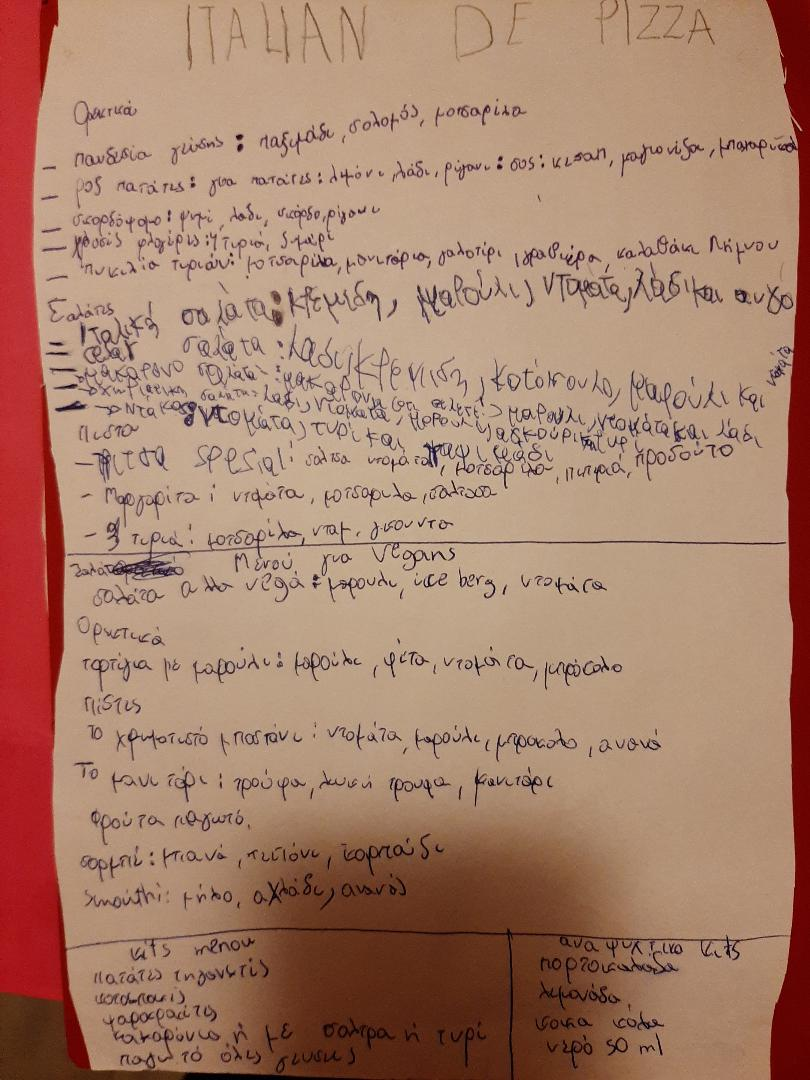 ITALIAN DE PIZZA
Ορεκτικά
– πανδεσία γεύσης : παξιμάδι, σολομός, μοτσαρίλα
– ροξ πατάτες : για πατάτες : λιμόνι, λάδι, ρίγανι : σος : κεσαπ, μαγιονέζα,
– σκορδόψομο : ψιμί, λάδι, σκόρδο, ρίγανι
– φλογέρες : 4 τυριά, 5 μερί
– πικιλία τυριόν : μοτσαρίλα, μανιτάρια, γαλοτίρι, γραβιέρα, καλαθάκι Λήμνου
Σαλάτες
– Ιταλική σαλάτα : κρεμιδη, μαρούλι, ντομάτα, λάδι και αυγο
– σαλάτα : λάδι, κρεμιδη, κοτόπουλο, μαρούλι και ντομάτα
– μακαρονο σαλάτα : μαρούλι, ντομάτα και λάδι
– χωριατικη σαλάτα : λάδι, ντομάτα, αγκούρι και τυρί
– ντομάτα, τυρί και λάδι
Πιστα
– πιτσα special : σάλτσα ντομάτα, μοτσαρίλα, πιπεριά, προσούτο
– Μαργαρίτα : ντομάτα, μοτσαρίλα, σάλτσα
– 3 τυριά : μοτσαρίλα, νταμ, γκουντα
Μενού για vegans
σαλάτα αλλα νεγά : μαρουλι, ice berg, ντομάτα
Ορεκτικά
τορτίγια με μαρούλι : μαρούλι, φέτα, ντομάτα, μπρόκολο
πίστες
Το χρωματιστό μποστάνι : ντομάτα, μαρούλι, μπροκολο, ανανά
Το μανιτάρι : τρούφα, λευκή τρουφα, μανιτάρι
Φρούτα παγωτό.
σορμπέ : μπανά, πεπόνι, καρπούζι
Smouthi : μήλο, αχλάδι, ανανάς
kits menou
πατάτες τηγανετές
κοτομπουκιές
ψαροκροκέτες
μακαρόνια ή με σάλτσα ή τυρί
παγωτό όλες γευσεις
αναψυκτικα kits
πορτοκαλαδα
λεμονάδα
κοκα κόλα
νερό 50 ml